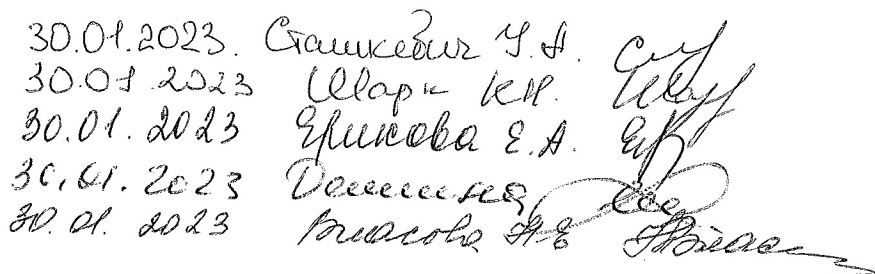 30.01.2023. Сташкевич У.А.
30.01.2023 Шарк К.Н.
30.01.2023 Ерикова Е.А.
30.01.2023 Демина
30.01.2023 Власова Н.Е